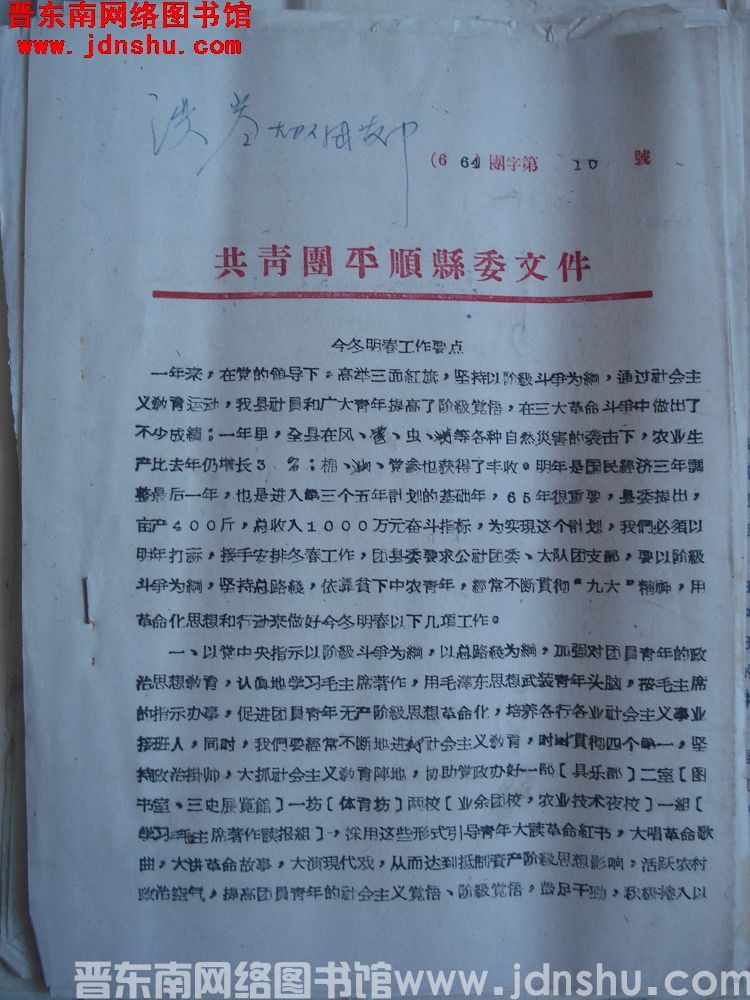 晋东南网络图书馆
www.jdnshu.com
(6 64) 團字第 10 號
共青團平順縣委文件
今冬明春工作要点
一年来，在党的領导下，高举三面紅旗，坚持以阶級斗爭为綱，通过社会主
义教育运动，我县社員和广大青年提高了阶級覚悟，在三大革命斗爭中做出了
不少成績；一年里，全县在风、雹、虫、等各种自然災害的袭击下，农业生
产比去年仍增长3 %；棉、油、党参也获得了丰收。明年是国民經济三年調
整最后一年，也是进入第三个五年計划的基础年，65年很重要，县委提出，
亩产400斤，总收入1000万元奋斗指标，为实現这个計划，我們必須以
明年打ᅟ，接手安排冬春工作，团县委要求公社团委、大队团支部，要以阶級
斗爭为綱，坚持总路綫，依靠貧下中农青年，經常不断貫彻“九大”精神，用
革命化思想和行动来做好今冬明春以下几項工作。
一、以党中央指示以阶級斗爭为綱，以总路綫为綱，加强对团員青年的政
治思想教育，认真地学习毛主席著作，用毛澤东思想武装青年头脑，按毛主席
的指示办事，促进团員青年无产阶級思想革命化，培养各行各业社会主义事业
接班人，同时，我們要經常不断地进行社会主义教育，时时貫彻四个第一，坚
持政治掛帅，大抓社会主义教育陣地，协助党政办好一部〔俱乐部〕二室〔图
书室、三史展覧館〕一坊〔体育坊〕两校〔业余团校，农业技术夜校〕一組〔
学习毛主席著作讀报組〕，採用这些形式引导青年大讀革命紅书，大唱革命歌
曲，大讲革命故事，大演現代戏，从而达到抵制資产阶級思想影响，活跃农村
政治空气，提高团員青年的社会主义覚悟、阶級覚悟，鼓足干勁，积极投入以
晋东南网络图书馆www.jdnshu.com